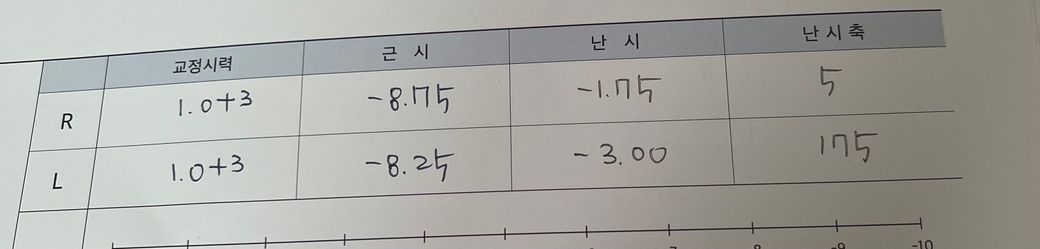 교정시력 근 시 난 시 난 시 축
R 1.0+3 -8.75 -1.75 5
L 1.0+3 -8.25 -3.00 175
-9 -10